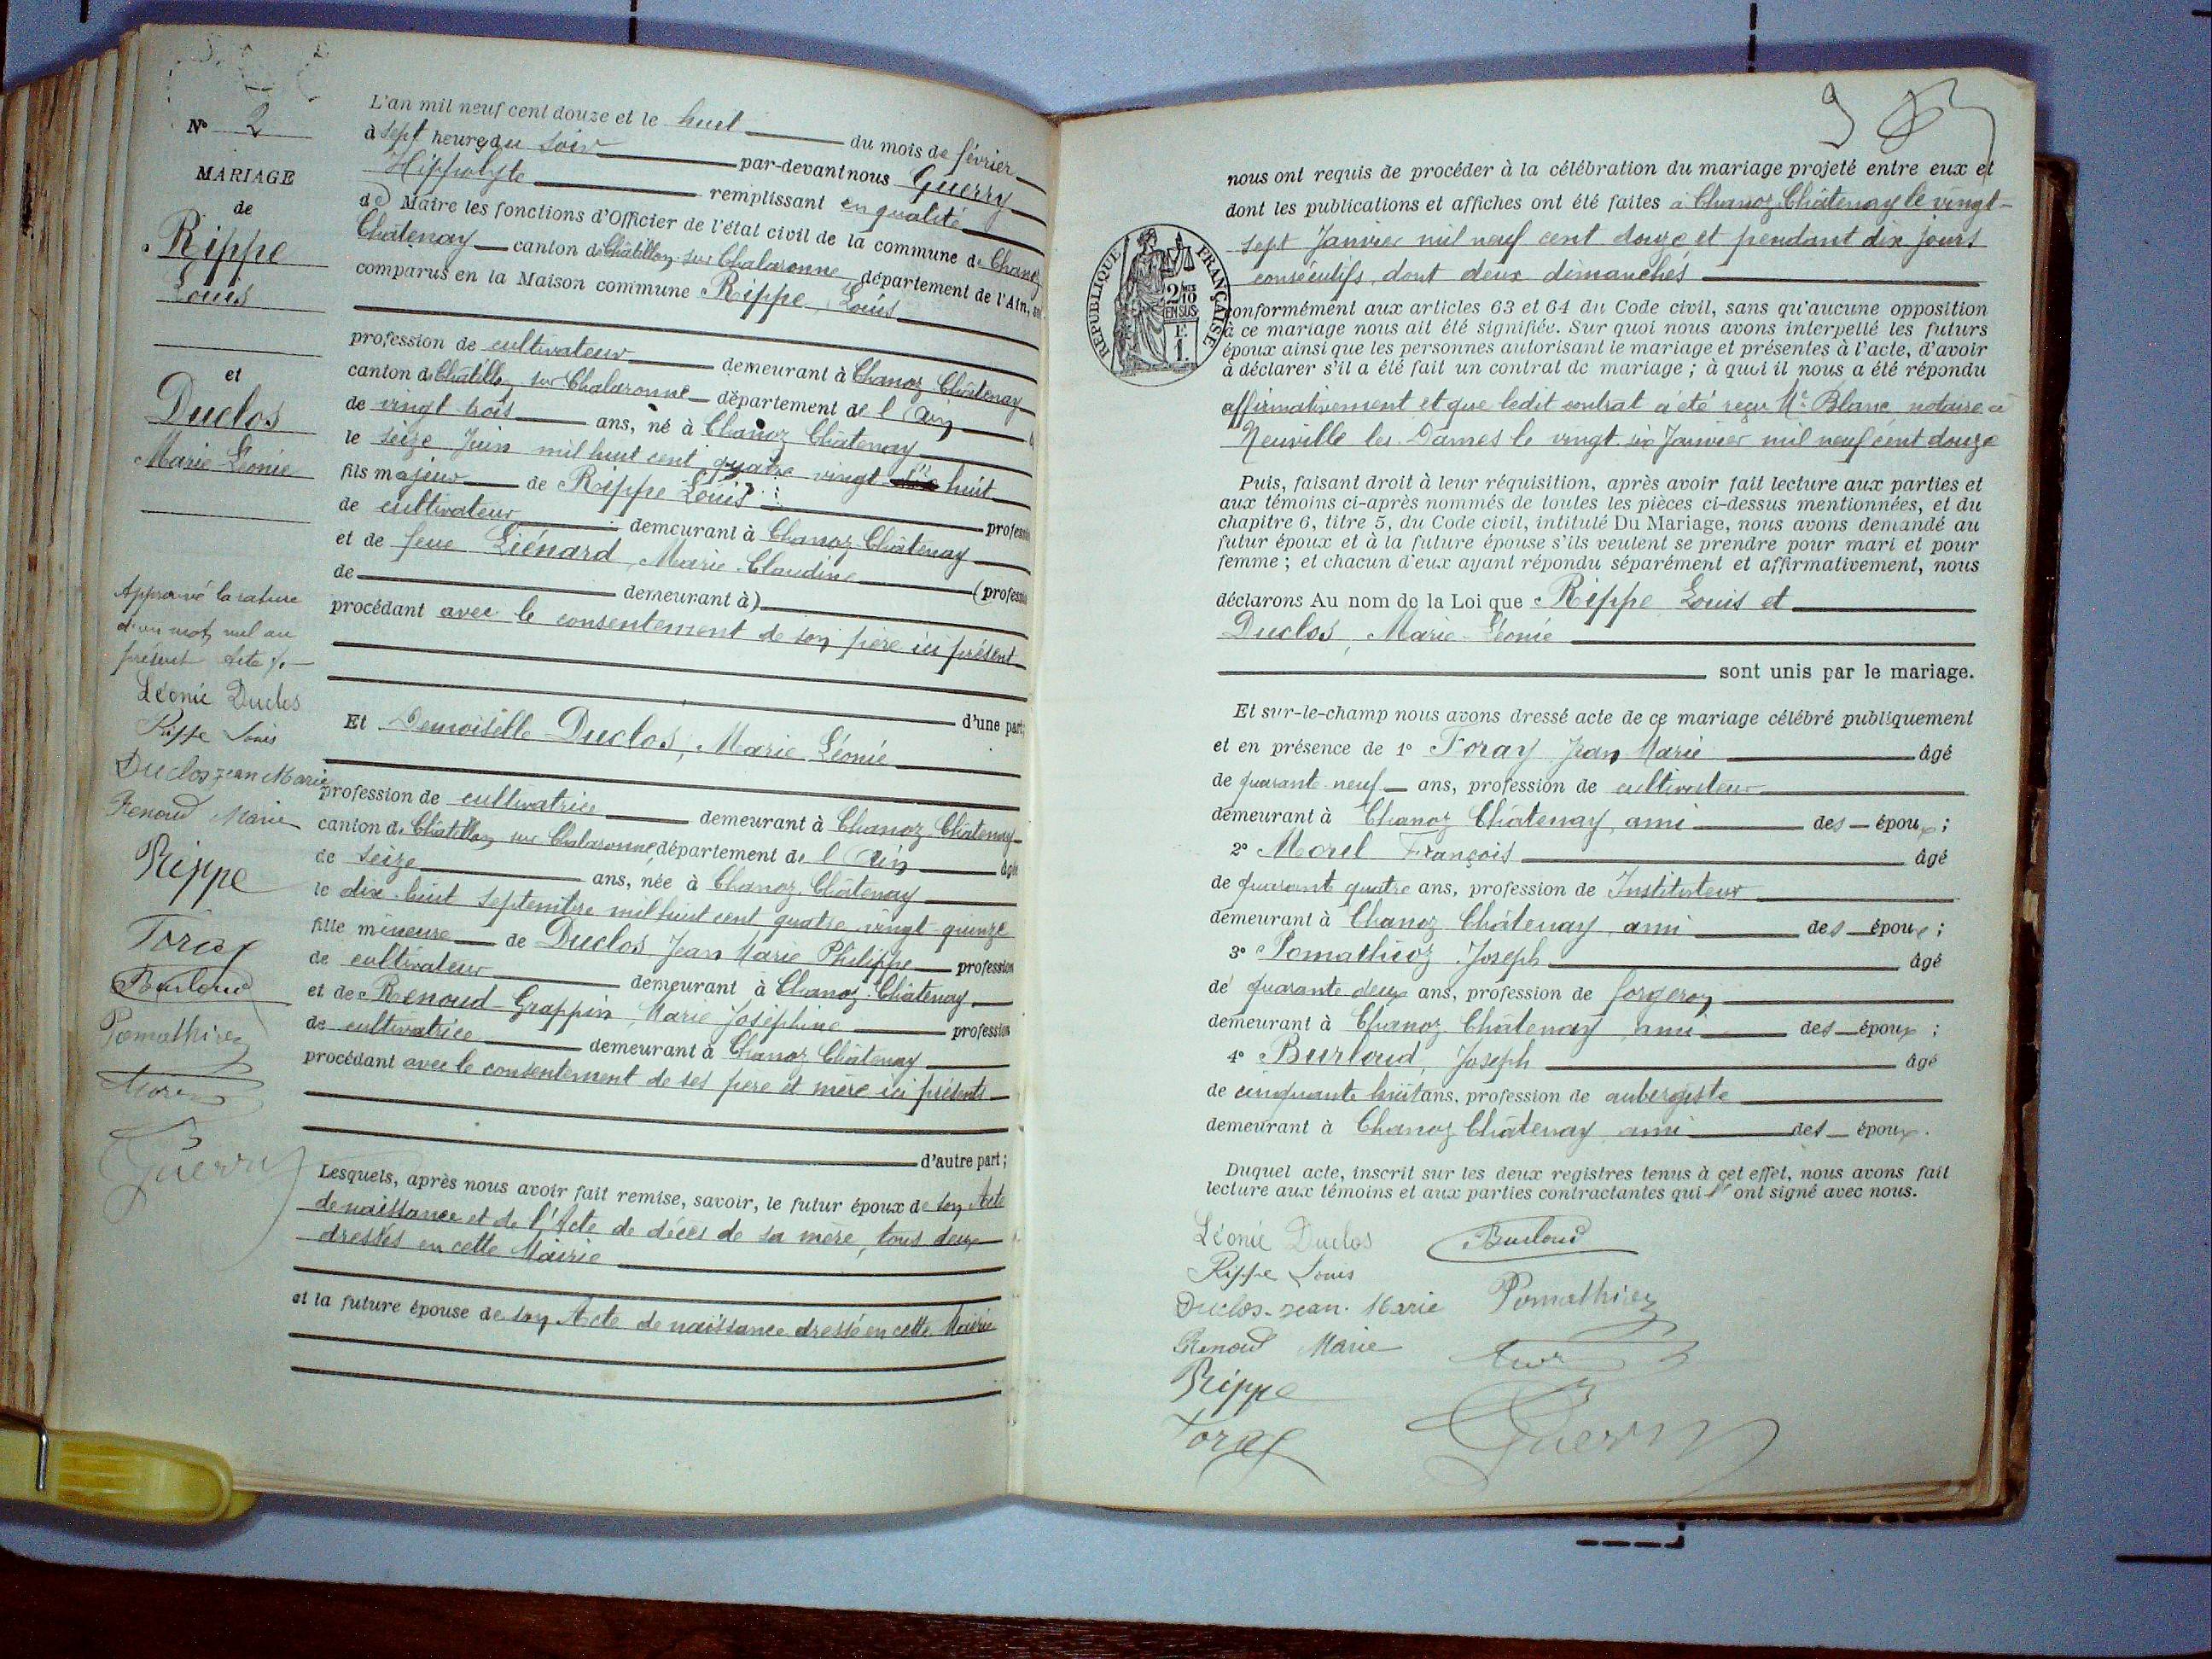 N° 2
MARIAGE
de
Rippe
Louis
et
Duclos
Marie Léonie
Approuvé la rature
d'un mot nul au
présent acte
Léonie Duclos
Rippe Louis
Duclos Jean Marie
Renoud Marie
Rippe
Foray
Burloud
Pomathioz
Morel
Guerry
L'an mil neuf cent douze et le huit du mois de février
à sept heures du soir par-devant nous Guerry
Hippolyte remplissant en qualité
de Maire les fonctions d'Officier de l'état civil de la commune de Chanoz
Châtenay canton de Châtillon sur Chalaronne département de l'Ain,
comparus en la Maison commune Rippe, Louis
profession de cultivateur demeurant à Chanoz Châtenay
canton de Châtillon sur Chalaronne département de l'Ain
de vingt trois ans, né à Chanoz Châtenay
le seize Juin mil huit cent quatre vingt huit
fils majeur de Rippe Louis professi
de cultivateur demeurant à Chanoz Châtenay
et de feue Liénard, Marie Claudine (professi
de demeurant à)
procédant avec le consentement de son père ici présent
d'une part;
Et Demoiselle Duclos, Marie Léonie
profession de cultivatrice demeurant à Chanoz Châtenay
canton de Châtillon sur Chalaronne département de l'Ain âgée
de seize ans, née à Chanoz Châtenay
le dix-huit Septembre mil huit cent quatre vingt quinze
fille mineure de Duclos Jean Marie Philippe profession
de cultivateur demeurant à Chanoz Châtenay
et de Renoud-Grappin, Marie Joséphine profession
de cultivatrice demeurant à Chanoz Châtenay
procédant avec le consentement de ses père et mère ici présents
d'autre part;
Lesquels, après nous avoir fait remise, savoir, le futur époux de son Acte
de naissance et de l'Acte de décès de sa mère, tous deux
dressés en cette Mairie
et la future épouse de son Acte de naissance dressé en cette Mairie
9
nous ont requis de procéder à la célébration du mariage projeté entre eux et
dont les publications et affiches ont été faites à Chanoz Châtenay le vingt-
sept Janvier mil neuf cent douze et pendant dix jours
consécutifs, dont deux dimanches
RÉPUBLIQUE FRANÇAISE
2/10 EN SUS
1 F.
conformément aux articles 63 et 64 du Code civil, sans qu'aucune opposition
à ce mariage nous ait été signifiée. Sur quoi nous avons interpellé les futurs
époux ainsi que les personnes autorisant le mariage et présentes à l'acte, d'avoir
à déclarer s'il a été fait un contrat de mariage ; à quoi il nous a été répondu
affirmativement et que ledit contrat a été reçu Me Blanc notaire à
Neuville les Dames le vingt six Janvier mil neuf cent douze
Puis, faisant droit à leur réquisition, après avoir fait lecture aux parties et
aux témoins ci-après nommés de toutes les pièces ci-dessus mentionnées, et du
chapitre 6, titre 5, du Code civil, intitulé Du Mariage, nous avons demandé au
futur époux et à la future épouse s'ils veulent se prendre pour mari et pour
femme ; et chacun d'eux ayant répondu séparément et affirmativement, nous
déclarons Au nom de la Loi que Rippe Louis et
Duclos, Marie-Léonie
sont unis par le mariage.
Et sur-le-champ nous avons dressé acte de ce mariage célébré publiquement
et en présence de 1° Foray Jean Marie âgé
de quarante neuf ans, profession de cultivateur
demeurant à Chanoz Châtenay, ami des époux ;
2° Morel François âgé
de quarante quatre ans, profession de Instituteur
demeurant à Chanoz Châtenay ami des époux ;
3° Pomathioz Joseph âgé
de quarante deux ans, profession de forgeron
demeurant à Chanoz Châtenay ami des époux ;
4° Burloud, Joseph âgé
de cinquante huit ans, profession de aubergiste
demeurant à Chanoz Châtenay ami des époux.
Duquel acte, inscrit sur les deux registres tenus à cet effet, nous avons fait
lecture aux témoins et aux parties contractantes qui l' ont signé avec nous.
Léonie Duclos Burloud
Rippe Louis
Duclos Jean Marie Pomathioz
Renoud Marie
Rippe
Foray Guerry